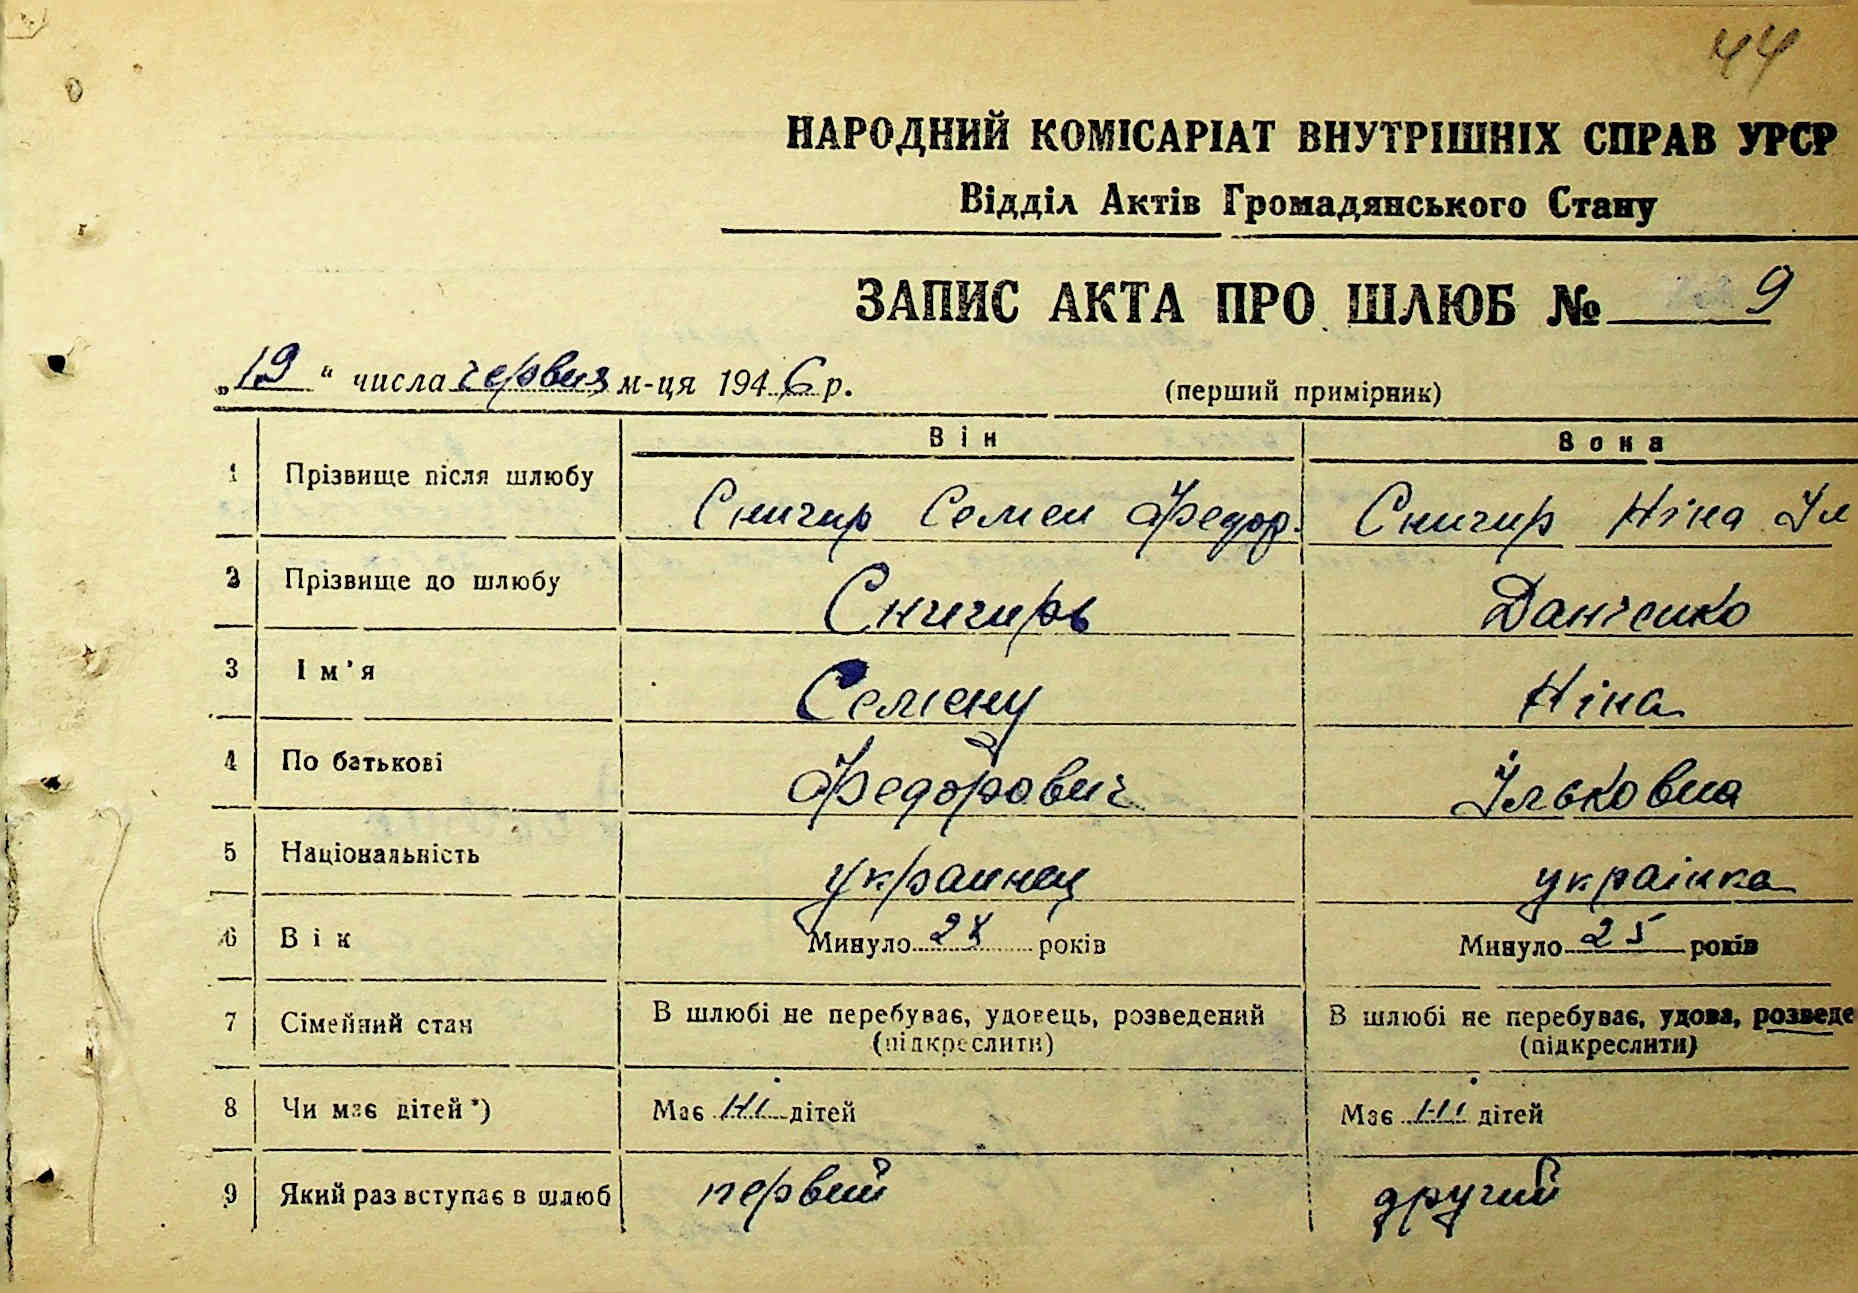 44
НАРОДНИЙ КОМІСАРІАТ ВНУТРІШНІХ СПРАВ УРСР
Відділ Актів Громадянського Стану
ЗАПИС АКТА ПРО ШЛЮБ № 9
„19" числа червня м-ця 1946 р. (перший примірник)
Він Вона
1 Прізвище після шлюбу Снигир Семен Федор. Снигир Ніна Іл
2 Прізвище до шлюбу Снигирь Данченко
3 Ім'я Семену Ніна
4 По батькові Федорович Ільковна
5 Національність украинец украінка
6 Вік Минуло 28 років Минуло 25 років
7 Сімейний стан В шлюбі не перебуває, удовець, розведений В шлюбі не перебуває, удова, розведе
(підкреслити) (підкреслити)
8 Чи має дітей*) Має ні дітей Має ні дітей
9 Який раз вступає в шлюб первий другий